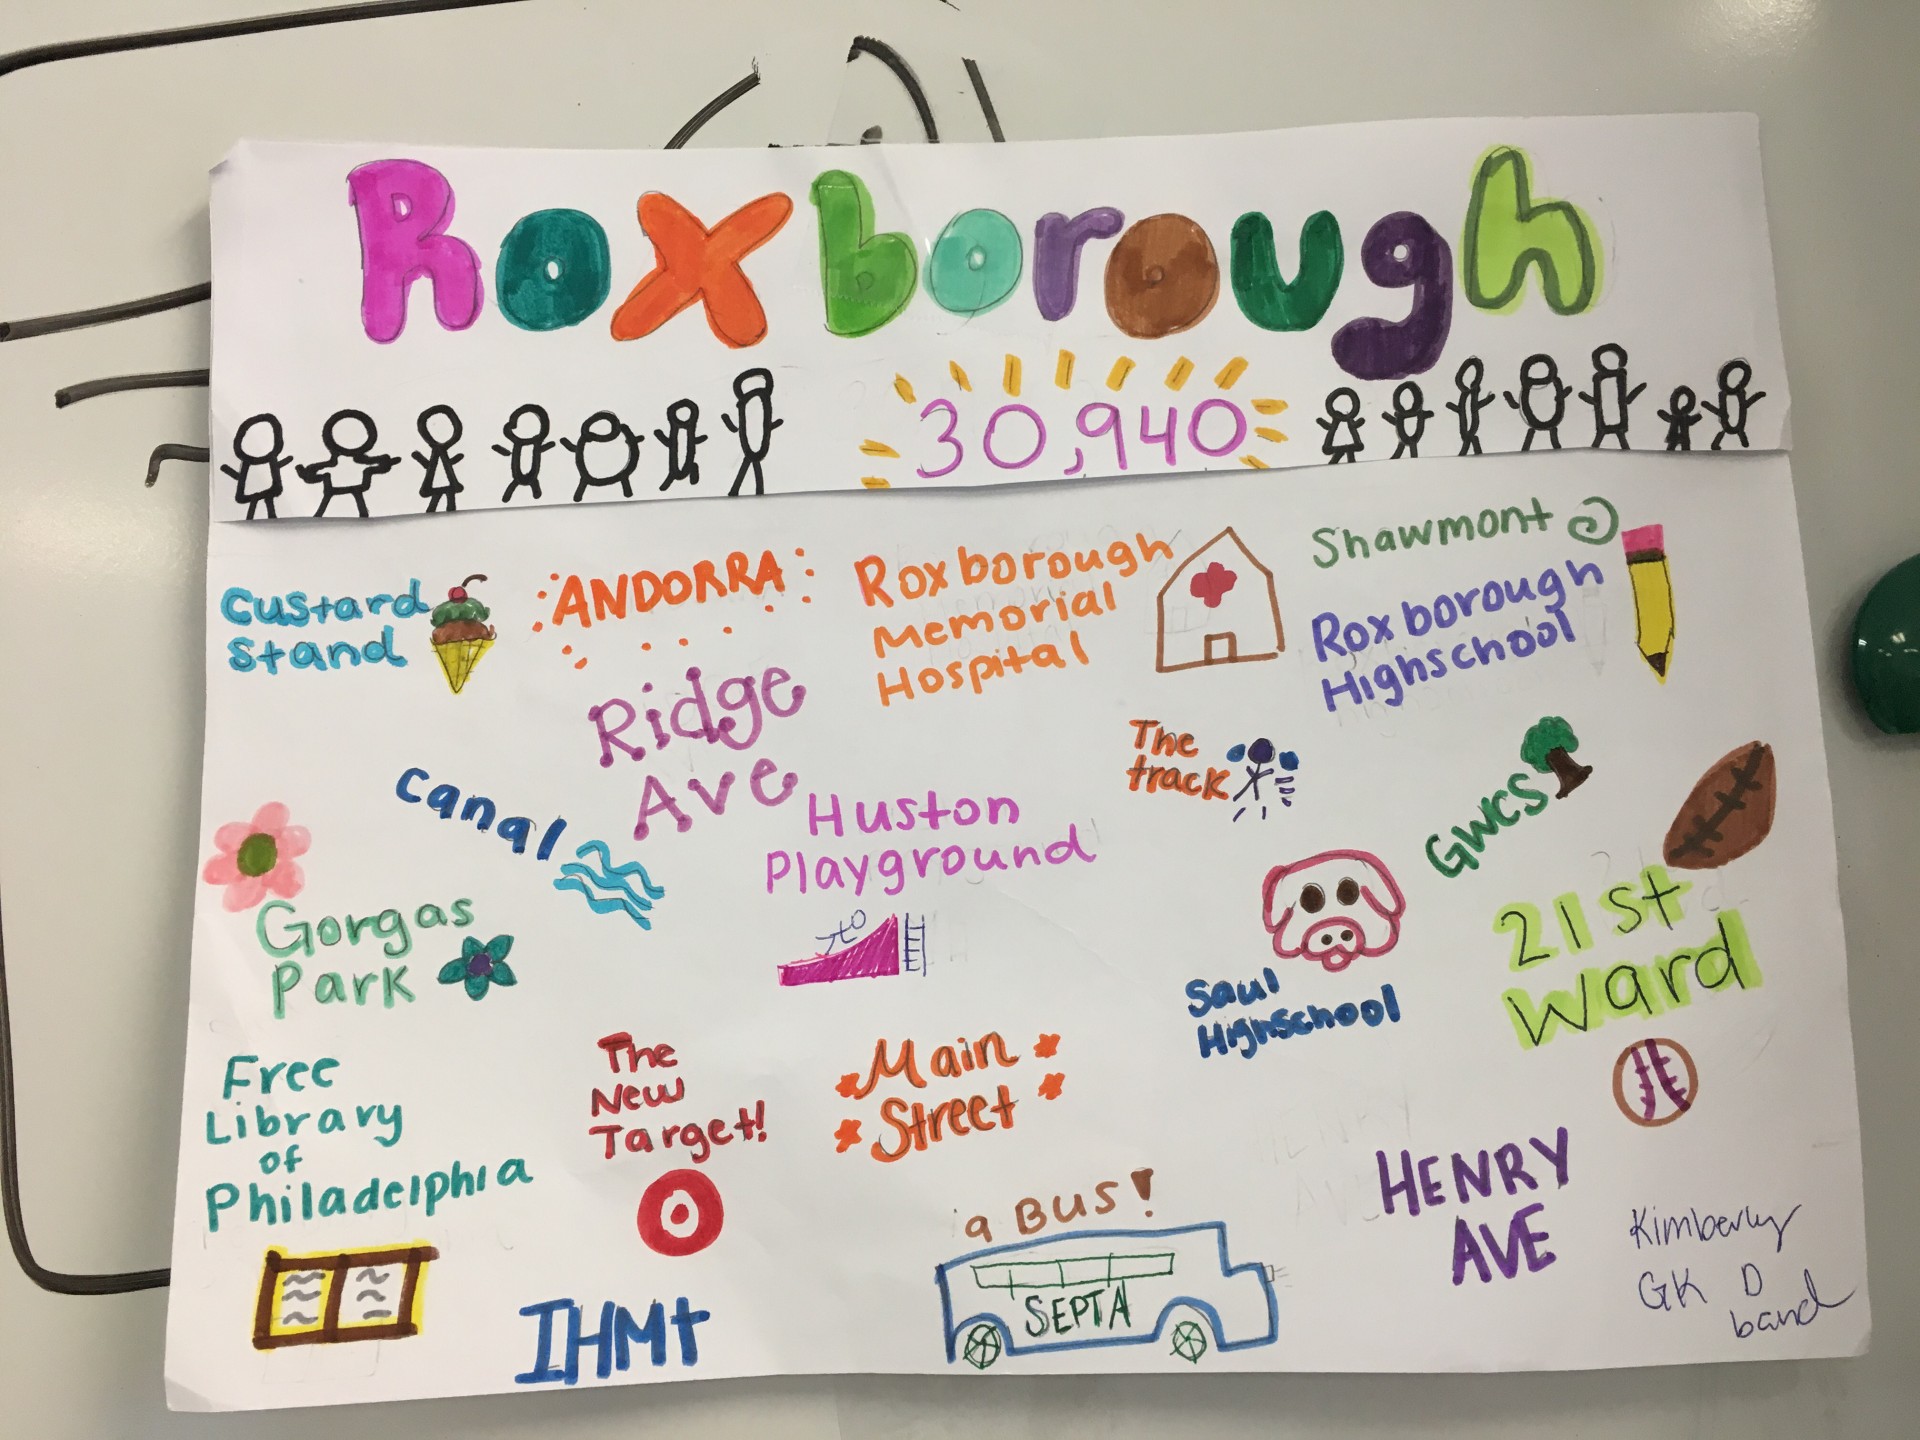 Roxborough
30,940
Custard
Stand
ANDORRA
Roxborough
Memorial
Hospital
Shawmont
Roxborough
Highschool
Ridge
Ave
The
track
Canal
Huston
Playground
GWCS
Gorgas
Park
Saul
Highschool
21st
Ward
Free
Library
of
Philadelphia
The
New
Target!
Main
Street
HENRY
AVE
a BUS!
SEPTA
IHMt
Kimberly
GK D
band